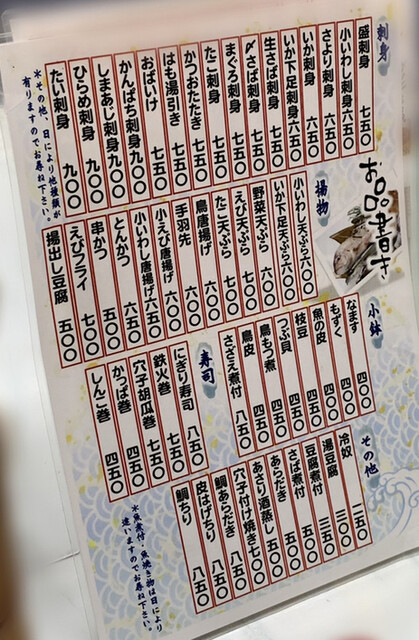 お品書き
刺身
盛刺身 七五〇
小いわし刺身 六五〇
さより刺身 六五〇
いか刺身 六五〇
いか下足刺身 六五〇
生さば刺身 七五〇
〆さば刺身 七五〇
まぐろ刺身 七五〇
たこ刺身 七五〇
かつおたたき 七五〇
はも湯引き 七五〇
おばいけ 七五〇
かんぱち刺身 九〇〇
しまあじ刺身 九〇〇
ひらめ刺身 九〇〇
たい刺身 九〇〇
※その他、日により他種類が
有りますのでお尋ね下さい。
揚物
小いわし天ぷら 六〇〇
いか下足天ぷら 六〇〇
野菜天ぷら 七〇〇
えび天ぷら 七〇〇
たこ天ぷら 七〇〇
鳥唐揚げ 六〇〇
手羽先 六〇〇
小えび唐揚げ 六〇〇
小いわし唐揚げ 六五〇
とんかつ 六五〇
串かつ 五〇〇
えびフライ 七〇〇
揚出し豆腐 五〇〇
小鉢
なます 四〇〇
もずく 四〇〇
魚の皮 四五〇
枝豆 四五〇
つぶ貝 四五〇
鳥もつ煮 四五〇
鳥皮 四五〇
さざえ煮付 八五〇
寿司
にぎり寿司 八五〇
鉄火巻 七五〇
穴子胡瓜巻 七五〇
かっぱ巻 四五〇
しんこ巻 四五〇
その他
冷奴 二五〇
湯豆腐 三〇〇
豆腐煮付 三五〇
さば煮付 五〇〇
あらだき 五〇〇
あさり酒蒸し 五〇〇
穴子付け焼き 七〇〇
鯛あらだき 八五〇
皮はげちり 八五〇
鯛ちり 八五〇
※魚煮付・魚焼き物は日により
違いますのでお尋ね下さい。